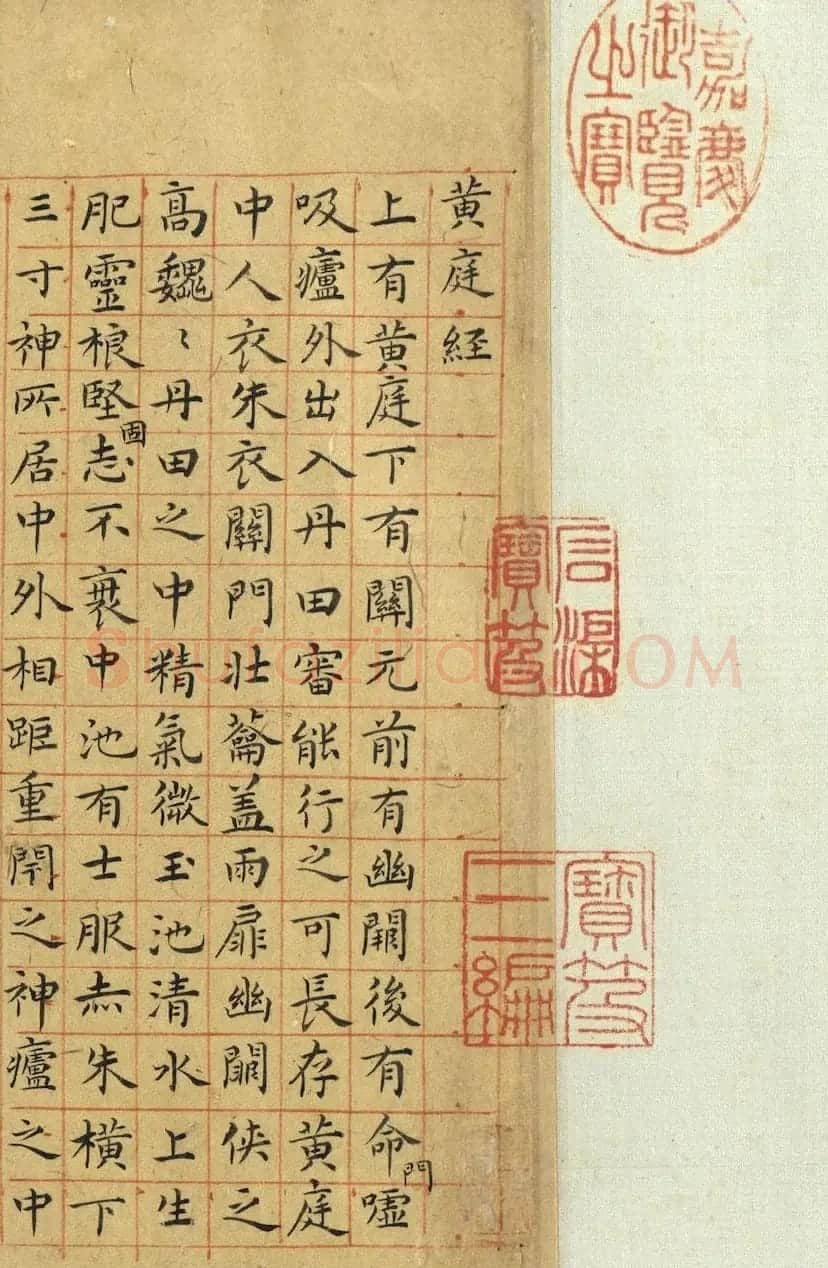 嘉慶御覽之寶
黄庭經
上有黄庭下有關元前有幽闕後有命門噓
吸廬外出入丹田審能行之可長存黄庭
中人衣朱衣關門壯蘥盖兩扉幽闕俠之
高巍〻丹田之中精氣微玉池清水上生
肥靈根堅固志不衰中池有士服赤朱橫下
三寸神所居中外相距重閇之神廬之中
石渠寶笈
寶笈三編